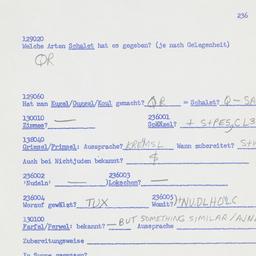 236
129020
Welche Arten Schalet hat es gegeben? (je nach Gelegenheit)
QR
129060
Hat man Kugel/Guggel/Koul gemacht? QR = Schalet? Q-SA
130010 236001
Zimmes? —
138040
Grimsel/Primsel: Aussprache? KREMSL Wann zubereitet?
Auch bei Nichtjuden bekannt?
236002 236003
'Nudeln' — Lokschen? —
236004 236005
Worauf gewälzt? TUX Womit? NUDLHOLC
130100
Farfel/Ferwel: bekannt? — BUT SOMETHING SIMILAR
Aussprache
Zubereitungsweise